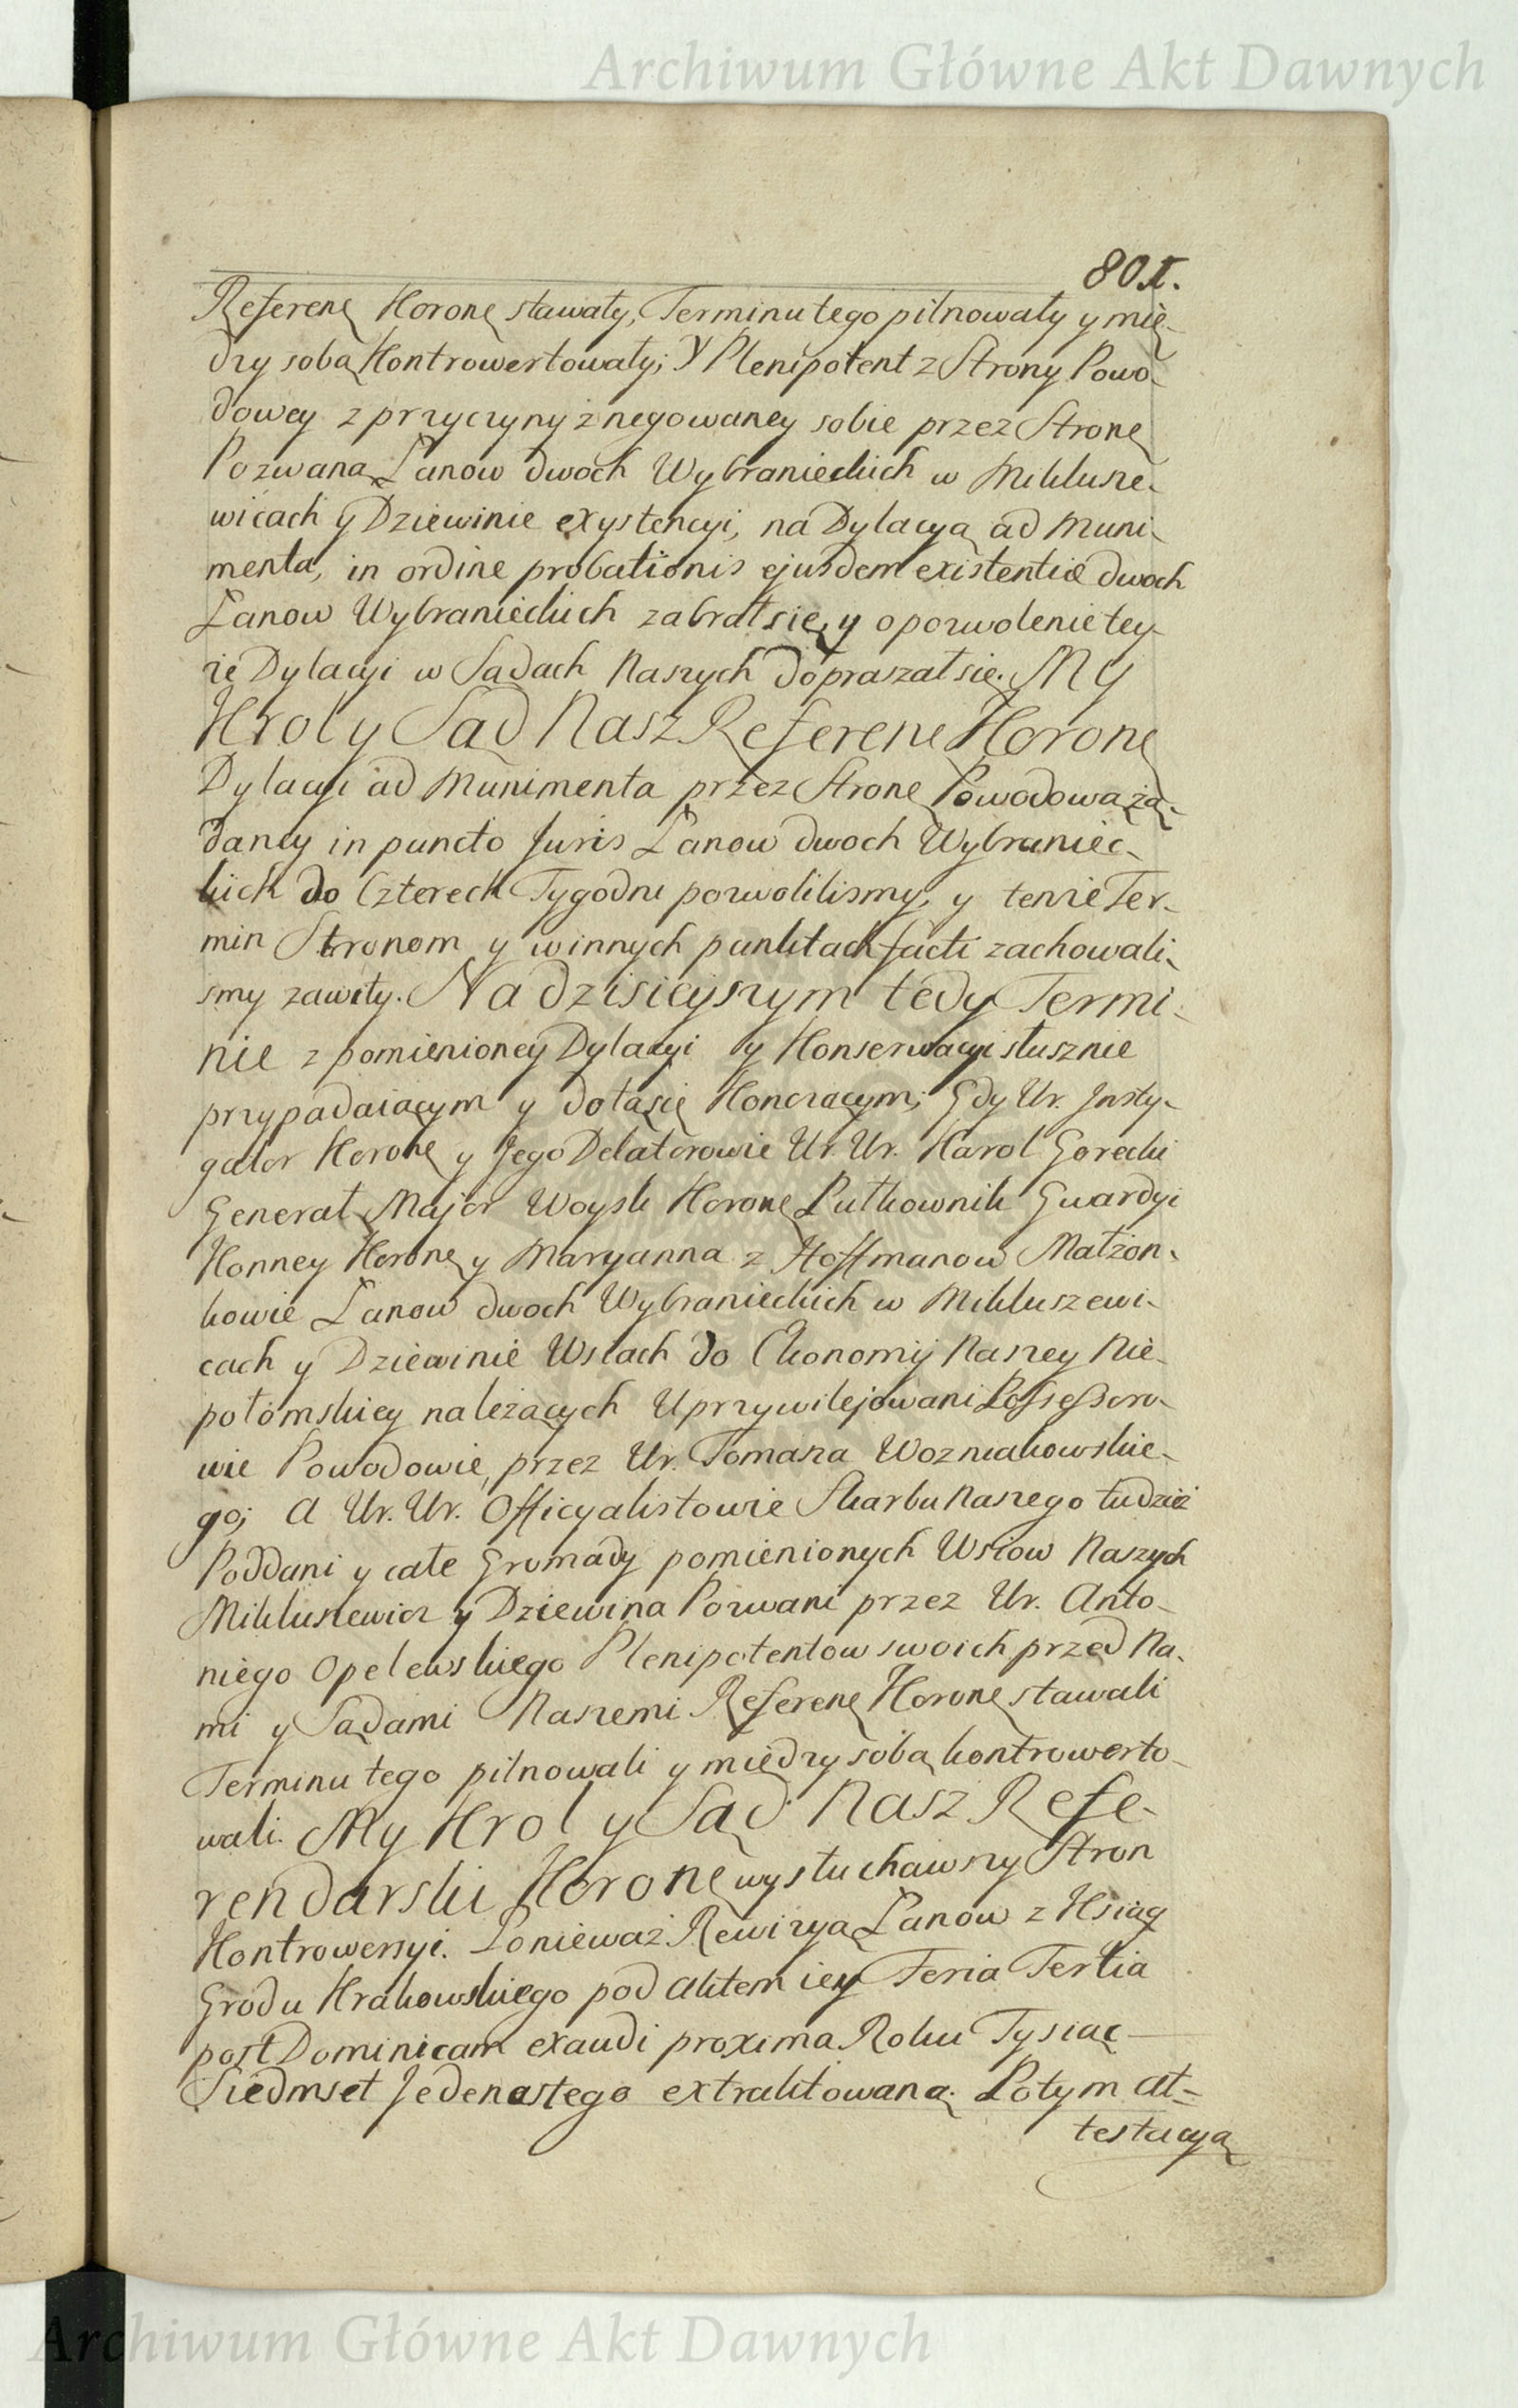 Archiwum Główne Akt Dawnych
801.
Referenę Koronę stawały, Terminu tego pilnowały y mię-
dzy sobą Kontrowertowały; Y Plenipotent z Strony Powo-
dowey z przyczyny znegowaney sobie przez Stronę
Pozwaną Łanow dwoch Wybranieckich w Mikłusze-
wicach y Dziewinie exystencyi, na Dylacyą ad Muni-
menta, in ordine probationis ejusdem existentiæ dwoch
Łanow Wybranieckich zabrał się, y o pozwolenie tey-
że Dylacyi w Sądach Naszych dopraszał się. My
Krol y Sąd Nasz Referenę Koronę
Dylacyi ad Munimenta przez Stronę Powodową żą-
daney in puncto Juris Łanow dwoch Wybraniec-
kich do Czterech Tygodni pozwolilismy, y tenże Ter-
min Stronom y w innych punktach facti zachowali-
smy zawity. Na dzisieyszym tedy Termi-
nie z pomienioney Dylacyi y Konserwacyi słusznie
przypadaiącym y dotąsię Konczącym; Gdy Ur. Insty-
gator Koronę y Jego Delatorowie Ur. Ur. Karol Gorecki
Generał Major Woysk Koronę Pułkownik Gwardyi
Konney Koronę y Maryanna z Hoffmanow Małżon-
kowie Łanow dwoch Wybranieckich w Mikłuszewi-
cach y Dziewinie Wsiach do Ekonomij Naszey Nie-
połomskiey należących Uprzywilejowani Possessoro-
wie Powodowie, przez Ur. Tomasza Wozniakowskie-
go; A Ur. Ur. Officyalistowie Skarbu Naszego tudzież
Poddani y całe Gromady pomienionych Wsiow Naszych
Mikłuszewicz y Dziewina Pozwani przez Ur. Anto-
niego Opelewskiego Plenipotentow swoich przed Na-
mi y Sądami Naszemi Referenę Koronę stawali
Terminu tego pilnowali y między sobą kontrowerto-
wali. My Krol y Sąd Nasz Refe-
rendarski Koronę wysłuchawszy Stron
Kontrowersyi. Ponieważ Rewizyą Łanow z Ksiąg
Grodu Krakowskiego pod Aktem iey Feria Tertia
post Dominicam exaudi proxima Roku Tysiąc
Siedmset Jedenastego extraktowaną. Potym At-
testacyą
Archiwum Główne Akt Dawnych